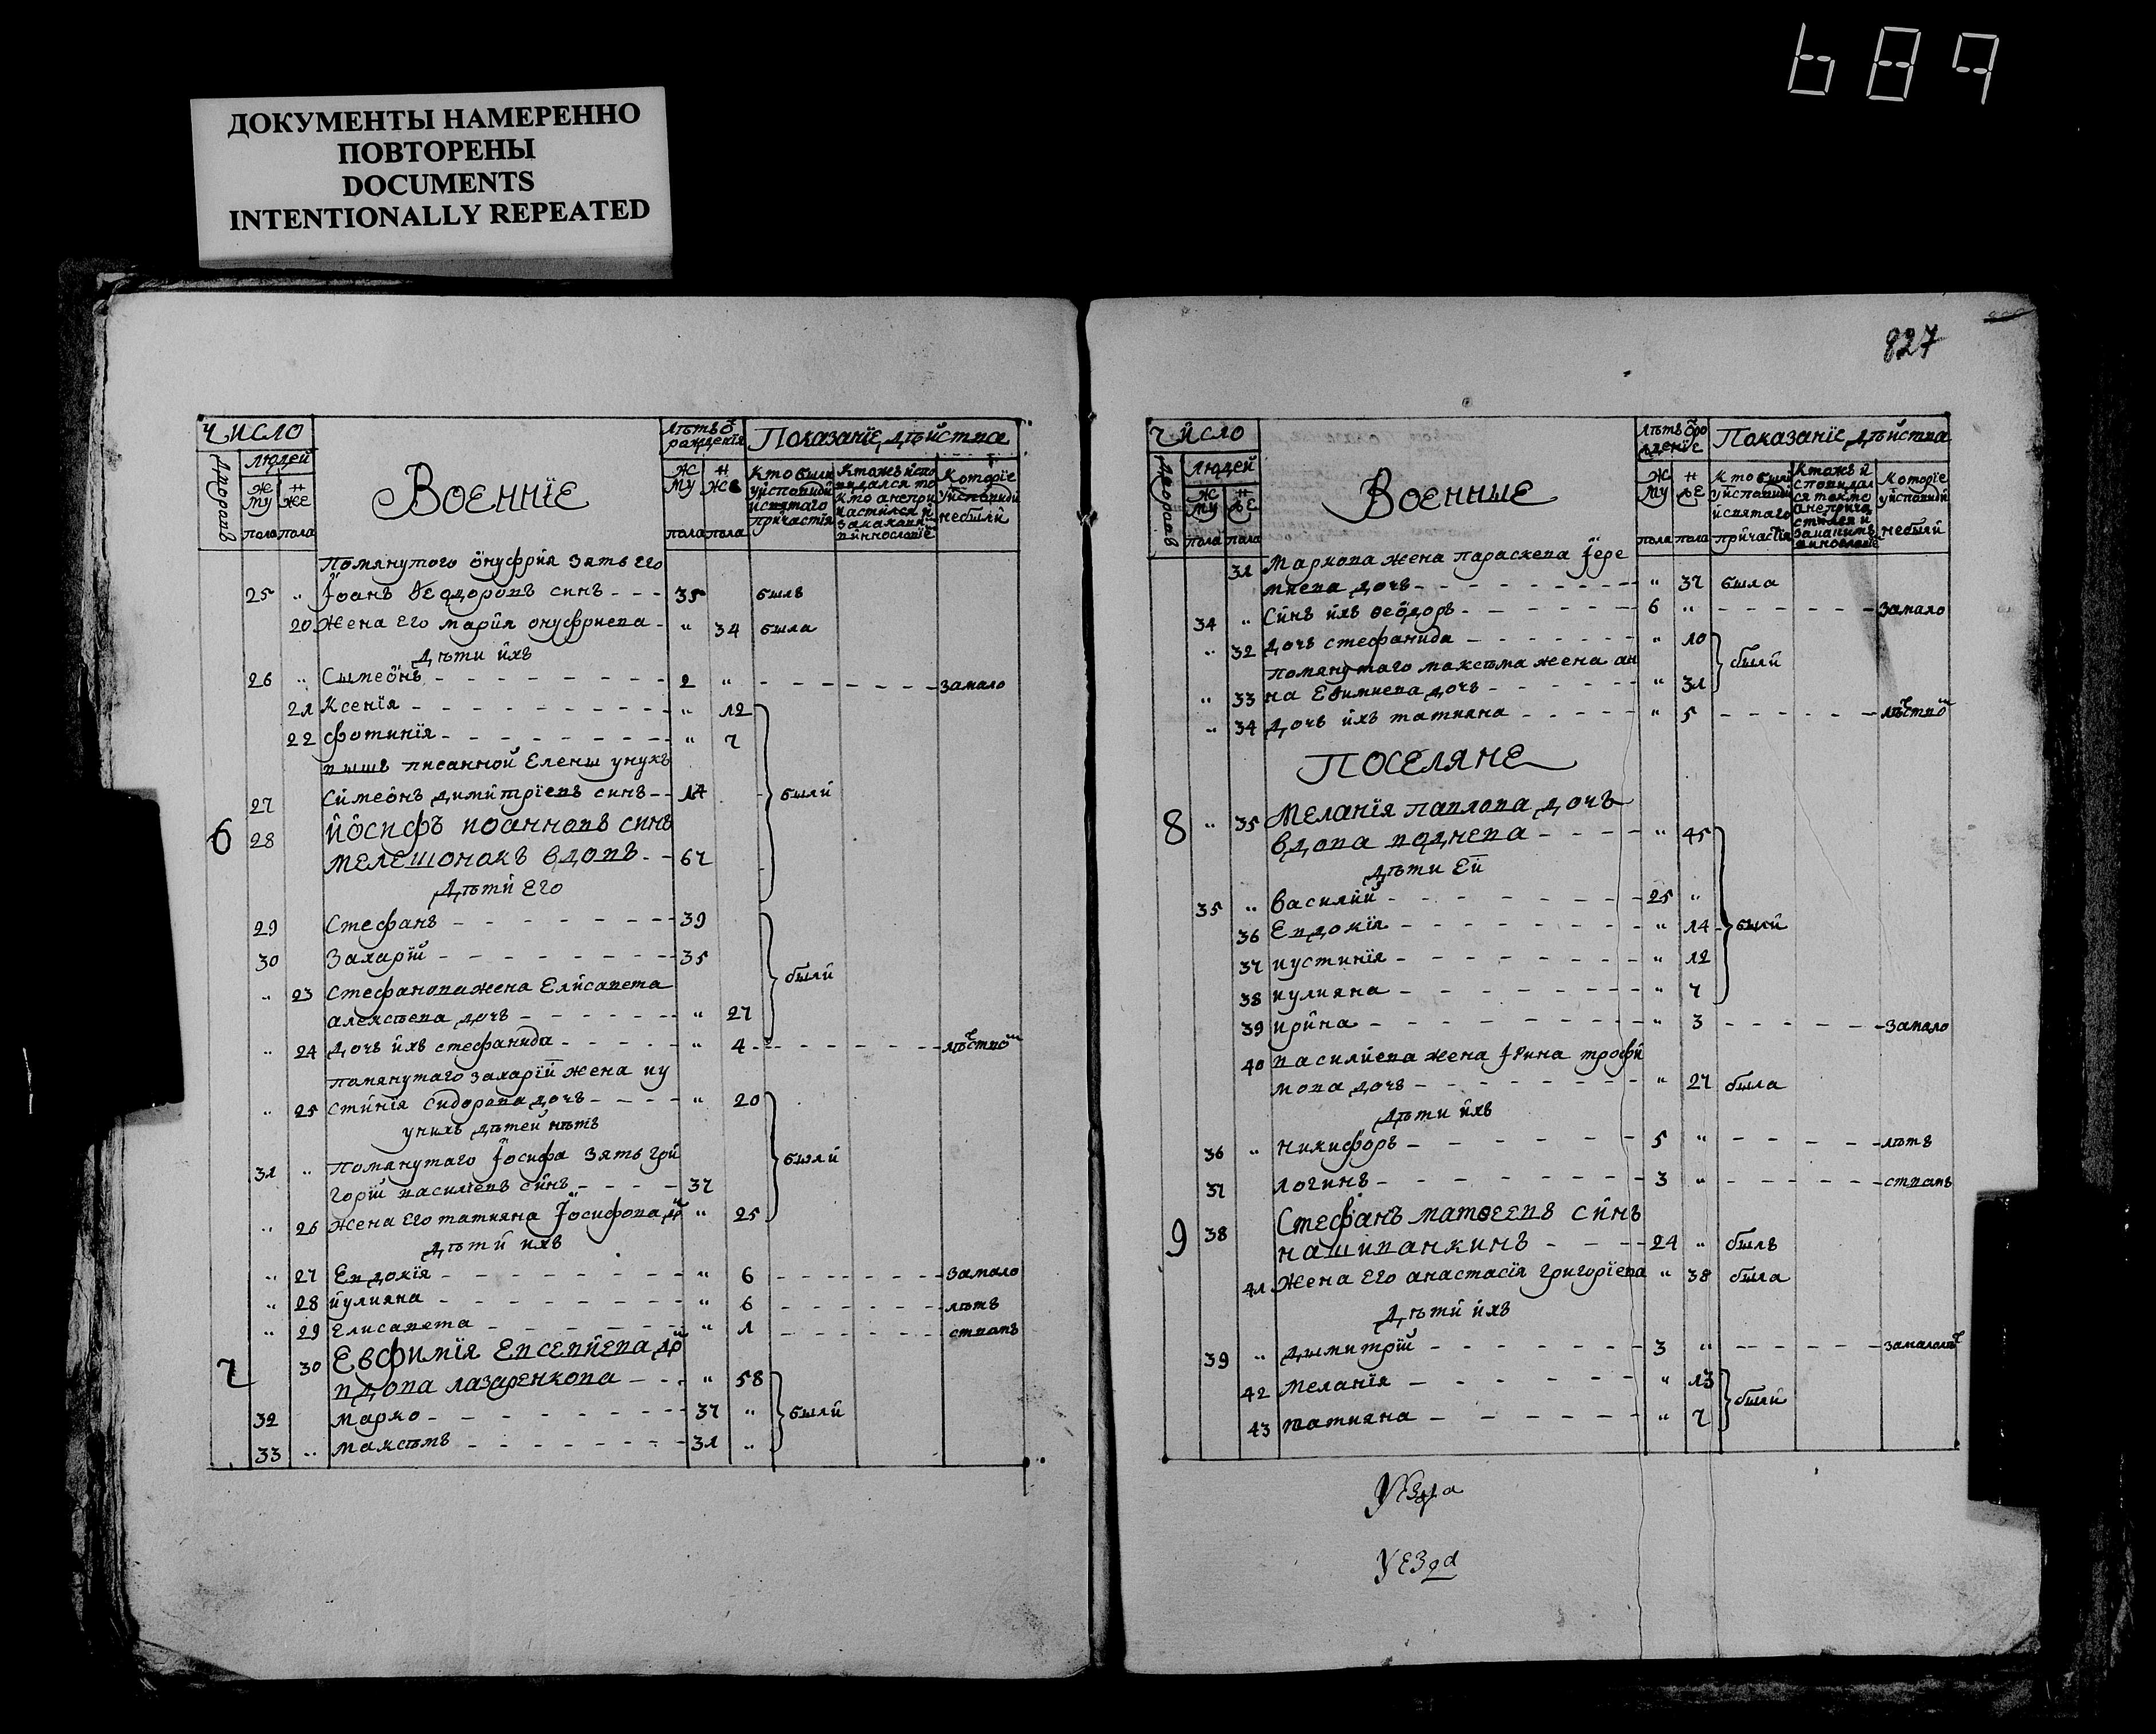 689
ДОКУМЕНТЫ НАМЕРЕННО
ПОВТОРЕНЫ
DOCUMENTS
INTENTIONALLY REPEATED
Число
Дворовъ
людей
му
пола
же
пола
Военніе
лѣтъ ѿ
рожденія
му
пола
же
пола
Показаніе дѣйства
Кто были
у исповѣди
и святаго
причастія
Которіе
у исповѣди
не были
Помянутого Онуфрія зять его
25 " Іоанъ Ѳеодоровъ синъ - - - 35 былъ
20 Жена его Марія Онуфриева - " 34 была
Дѣти ихъ
26 " Сымеонъ - - - 2 " - - - за мало
21 Ксенія - - - " 12
22 Фотинія - - - " 7
выше писанной Елены унукъ
27 Симеонъ Димитріевъ синъ - - 14 были
6 28 Иосифъ Иоанновъ синъ
Мелешонокъ вдовъ - - 67
Дѣти его
29 Стефанъ - - - 39
30 Захарій - - - 35
были
" 23 Стефанова жена Елисавета
Алексѣева дочъ - - - " 27
" 24 Дочъ ихъ Стефанида - - - " 4 - - - лѣтство
помянутаго Захарій жена Иу
" 25 стинія Сидорова дочъ - - - " 20
у нихъ дѣтей нѣтъ
31 " помянутаго Іосифа зять Гри были
горій Василіевъ синъ - - - 37
" 26 Жена его Татияна Іосифова до " 25
Дѣти ихъ
" 27 Евдокія - - - " 6 - - - за мало
" 28 Иулияна - - - " 6 - - - лѣтъ
" 29 Елисавета - - - " 1 - - - ствомъ
7 30 Евфимія Евсевиева до
вдова Лазаренкова - - - " 58
32 Марко - - - 37 " были
33 " Максѣмъ - - - 31 "
827
Число
Дворовъ
людей
му
пола
же
пола
Военные
лѣтъ ѿ ро
жденіе
му
пола
же
пола
Показаніе дѣйства
Кто были
у исповѣди
и святаго
причастія
Которіе
у исповѣди
не были
31 Маркова жена Параскева Іере
миева дочъ - - - " 37 была
34 " Синъ ихъ Ѳеодоръ - - - 6 " - - - за мало
" 32 дочъ Стефанида - - - " 10
помянутаго Максѣма жена Ан были
" 33 на Евимиева дочъ - - - " 31
" 34 дочъ ихъ Татияна - - - " 5 - - - лѣтство
Поселяне
8 " 35 Меланія Павлова дочъ
вдова - - - " 45
Дѣти ей
35 " Василий - - - 25 "
36 Евдокія - - - " 14 были
37 Иустинія - - - " 12
38 Иулияна - - - " 7
39 Ирина - - - " 3 - - - за мало
40 Василиева жена Ірина Трофи
мова дочъ - - - " 27 была
Дѣти ихъ
36 " Никифоръ - - - 5 " - - - лѣтъ
37 Логинъ - - - 3 " - - - ствомъ
9 38 Стефанъ Матѳеевъ синъ
Нашиванкинъ - - - 24 " былъ
41 Жена его Анастасія Григоріева " 38 была
Дѣти ихъ
39 " Дымитрій - - - 3 " - - - за малолѣт
42 Меланія - - - " 13
были
43 Татияна - - - " 7
Уезда
Уезда